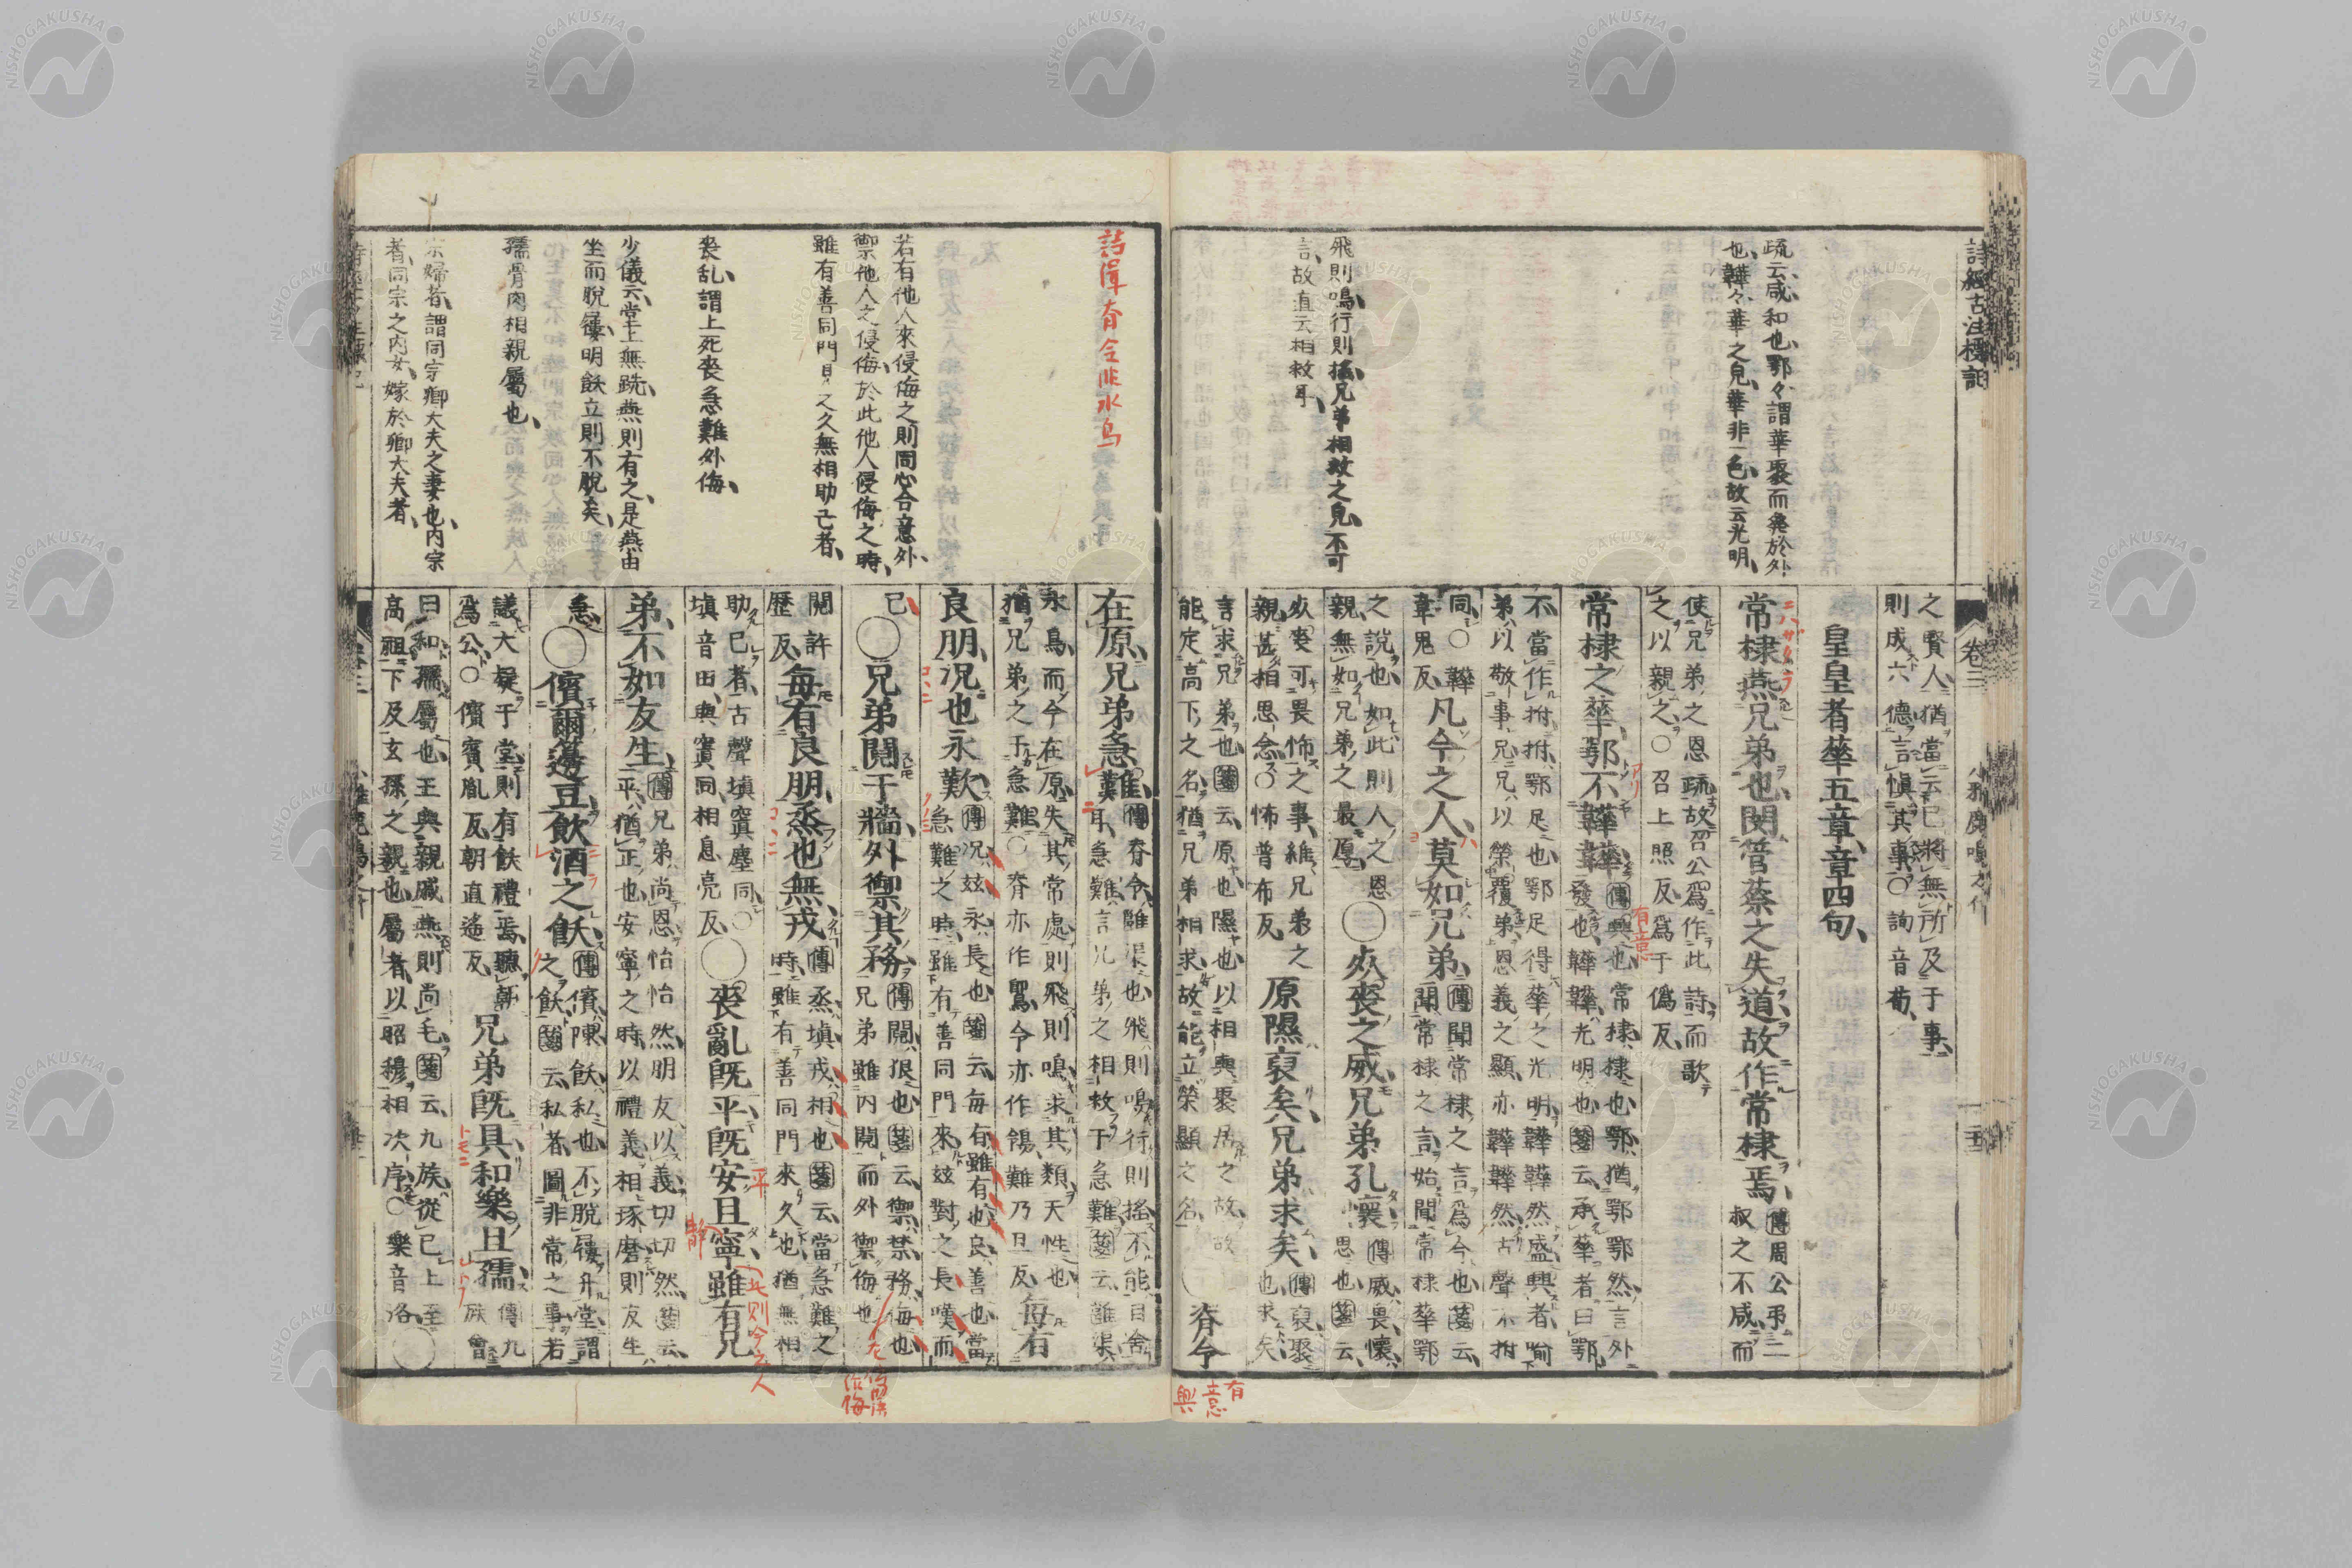 詩經古注標記
卷三
小雅鹿鳴之什
疏云、咸、和也、鄂々、謂華聚而發於外
也、韡々、華之皃、華非一色、故云光明、
飛則鳴、行則搖、兄弟相救之皃、不可
言、故直云相救耳、
之賢人、猶當云已將無所及于事、
則成六德、言愼其事、○詢音荀、
皇皇者華五章、章四句、
常棣燕兄弟也、閔管蔡之失道、故作常棣焉、
傳周公弔二
叔之不咸、而
使兄弟之恩疏、故召公爲作此詩、而歌
之以親之、○召上照反、爲于僞反、
常棣之華、鄂不韡韡、
傳興也、常棣、棣也、鄂、猶鄂鄂然、言外
發也、韡韡、光明也、箋云、承華者曰鄂、
不、當作拊、拊、鄂足也、鄂足得華之光明、韡韡然盛、興者、喻
弟以敬事兄、兄以榮覆弟、恩義之顯、亦韡韡然、古聲不拊
同、○韡
韋鬼反、
凡今之人、莫如兄弟、
傳聞常棣之言爲今也、箋云、
聞常棣之言、始聞常棣華鄂
之說也、如此則人之恩
親、無如兄弟之最厚、
○死喪之威、兄弟孔懷、
傳威、畏、懷、
思也、箋云、
死喪可畏怖之事、維兄弟之
親、甚相思念、○怖普布反、
原隰裒矣、兄弟求矣、
傳裒、聚
也、求矣、
言求兄弟也、箋云、原也隰也、以相與聚居之故、故
能定高下之名、猶兄弟相求、故能立榮顯之名、
○脊令
有意
有意興
詰渾脊令非水鳥
若有他人來侵侮之、則同心合意、外
禦他人之侵侮、於此他人侵侮之時、
雖有善同門見之久、無相助己者、
喪乱、謂上死喪急難外侮、
少儀云、堂上無跣、燕則有之、是燕由
坐而脫屨、明飫立則不脫矣、
孺、骨肉相親屬也、
宗婦者、謂同宗卿大夫之妻也、內宗
者、同宗之內女、嫁於卿大夫者、
在原、兄弟急難、
傳脊令、雝渠也、飛則鳴、行則搖、不能自舍
耳、急難、言兄弟之相救于急難、箋云、雝渠、
水鳥、而今在原、失其常處、則飛則鳴、求其類、天性也、
猶兄弟之于急難、○脊亦作鶺、令亦作鴒、難乃旦反、
每有
良朋、況也永歎、
傳況、玆、永、長也、箋云、每有、雖有也、良、善也、當
急難之時、雖有善同門來、玆對之長嘆而
已、
○兄弟鬩于牆、外禦其務、
傳鬩、很也、箋云、禦、禁、務、侮也、
兄弟雖內鬩、而外禦侮也、
鬩許
歷反、
每有良朋、烝也無戎、
傳烝、塡、戎、相也、箋云、當急難之
時、雖有善同門來、久也猶無相
助己者、古聲塡寘塵同、○
塡音田、與寘同、相息亮反、
○喪亂旣平、旣安且寧、雖有兄
弟、不如友生、
傳兄弟尚恩怡怡然、朋友以義切切然、箋云、
平、猶正也、安寧之時、以禮義相琢磨、則友生
急、
○儐爾籩豆、飲酒之飫、
傳儐、陳、飫、私也、不脫屨升堂、謂
之飫、箋云、私者、圖非常之事、若
議大疑于堂、則有飫禮焉、聽朝
爲公、○儐賓胤反、朝直遙反、
兄弟旣具、和樂且孺、
傳九
族會
曰和、孺、屬也、王與親戚燕、則尚毛、箋云、九族、從己上至
高祖、下及玄孫之親也、屬者、以昭穆相次序、○樂音洛、
○